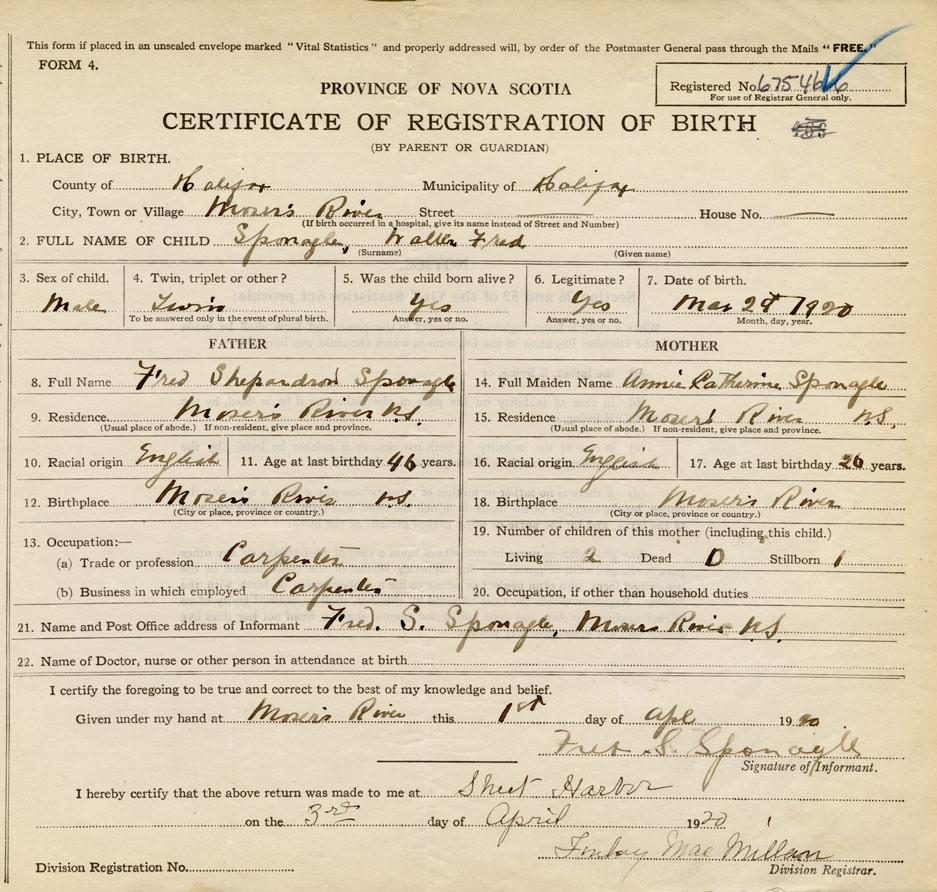 This form if placed in an unsealed envelope marked "Vital Statistics" and properly addressed will, by order of the Postmaster General pass through the Mails "FREE."
FORM 4.
PROVINCE OF NOVA SCOTIA
Registered No. 67546
For use of Registrar General only.
CERTIFICATE OF REGISTRATION OF BIRTH
(BY PARENT OR GUARDIAN)
1. PLACE OF BIRTH.
County of Halifax Municipality of Halifax
City, Town or Village Moser's River Street House No.
(If birth occurred in a hospital, give its name instead of Street and Number)
2. FULL NAME OF CHILD Sponagle, Walter Fred
(Surname) (Given name)
3. Sex of child. 4. Twin, triplet or other? 5. Was the child born alive? 6. Legitimate? 7. Date of birth.
Male Twin Yes Yes Mar 29 1920
To be answered only in the event of plural birth. Answer, yes or no. Answer, yes or no. Month, day, year.
FATHER
8. Full Name Fred Sponagle
9. Residence Moser's River N.S.
(Usual place of abode.) If non-resident, give place and province.
10. Racial origin English 11. Age at last birthday 46 years.
12. Birthplace Moser's River N.S.
(City or place, province or country.)
13. Occupation:—
(a) Trade or profession Carpenter
(b) Business in which employed Carpenter
MOTHER
14. Full Maiden Name Annie Catherine Sponagle
15. Residence Moser's River N.S.
(Usual place of abode.) If non-resident, give place and province.
16. Racial origin English 17. Age at last birthday 26 years.
18. Birthplace Moser's River
(City or place, province or country.)
19. Number of children of this mother (including this child.)
Living 2 Dead 0 Stillborn 1
20. Occupation, if other than household duties
21. Name and Post Office address of Informant Fred. S. Sponagle, Mosers River N.S.
22. Name of Doctor, nurse or other person in attendance at birth
I certify the foregoing to be true and correct to the best of my knowledge and belief.
Given under my hand at Moser's River this 1st day of Apl 1920
Fred S. Sponagle
Signature of Informant.
I hereby certify that the above return was made to me at Sheet Harbor
on the 3rd day of April 1920
Finlay MacMillan
Division Registration No. Division Registrar.